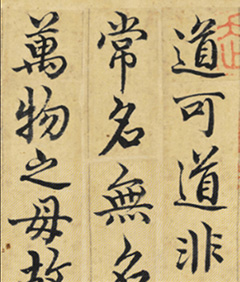 道可道非
常名無名
萬物之母故